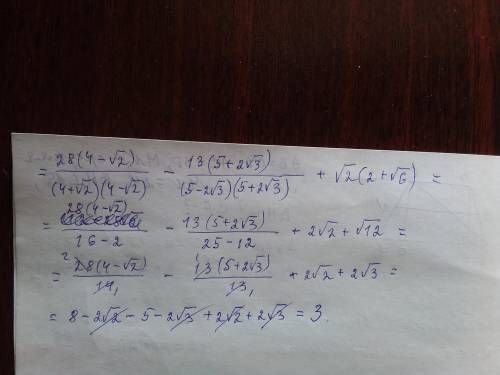 = 28(4-√2)/(4+√2)(4-√2) - 13(5+2√3)/(5-2√3)(5+2√3) + √2(2+√6) =
= 28(4-√2)/16-2 - 13(5+2√3)/25-12 + 2√2 + √12 =
= ²28(4-√2)/14₁ - ¹13(5+2√3)/13₁ + 2√2 + 2√3 =
= 8 - 2√2 - 5 - 2√3 + 2√2 + 2√3 = 3.